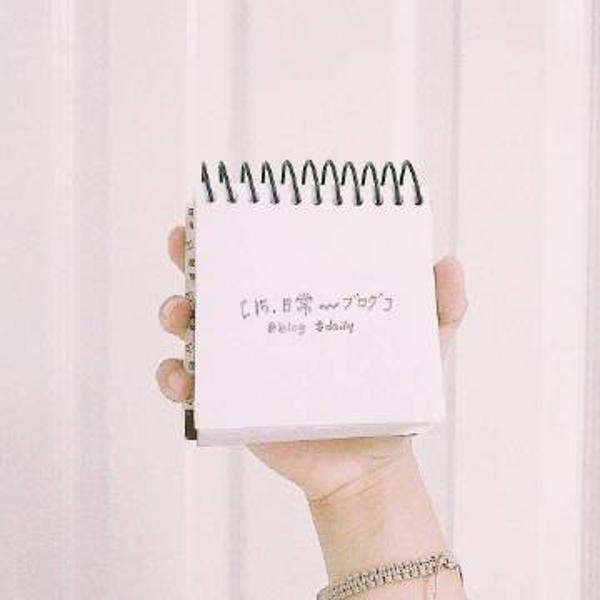 [15.日常〜ブログ]
#blog #daily